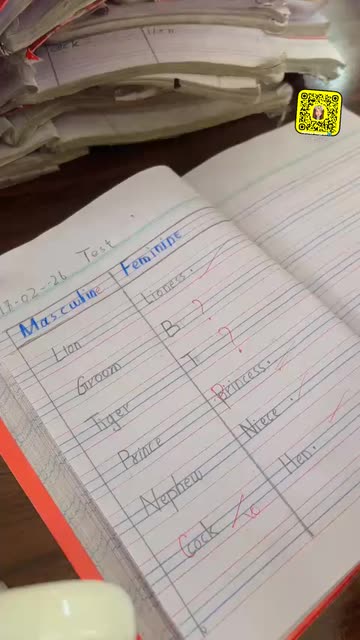 Cock Hen
17-02-26 Test
Masculine Feminine
Lion Lioness.
Groom B ?
Tiger T ?
Prince Princess.
Nephew Niece.
Cock Hen.